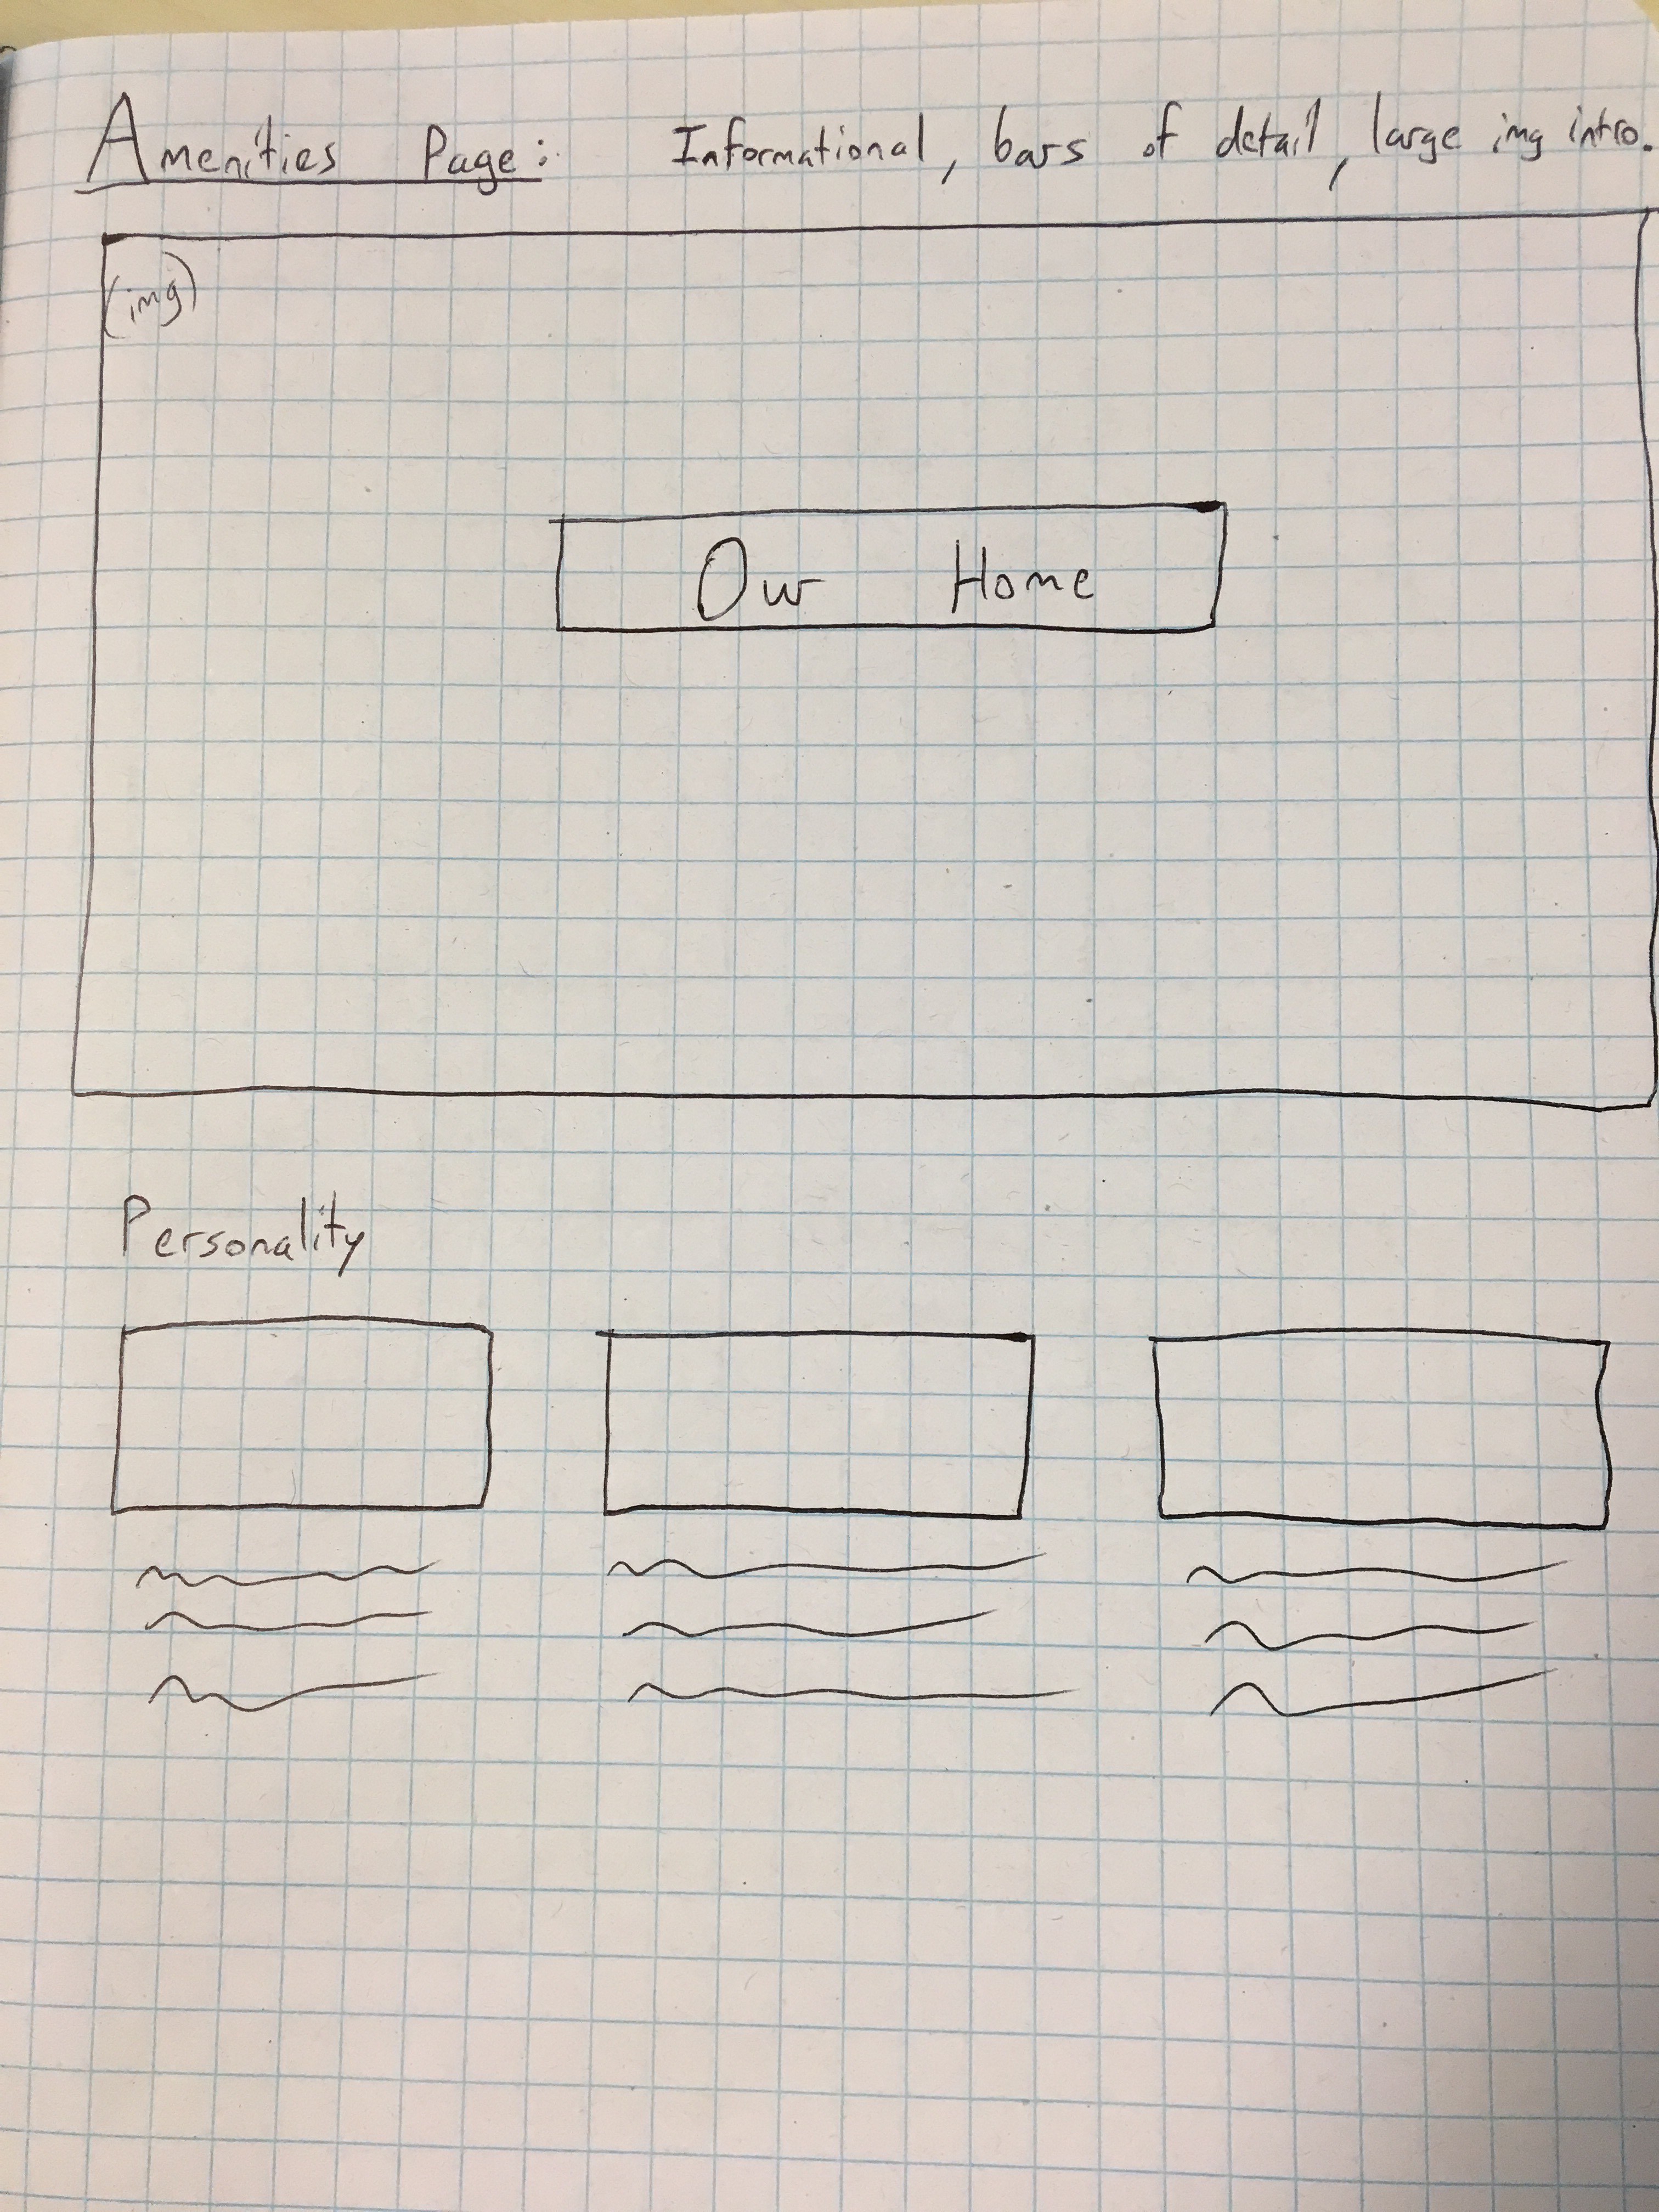 Amenities Page: Informational, bars of detail, large img intro.
(img)
Our Home
Personality